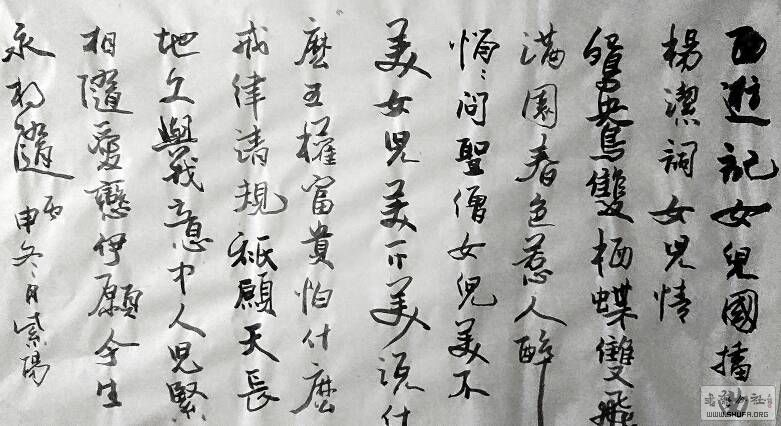 西遊記女兒國插
楊潔詞女兒情
鴛鴦雙栖蝶雙飛
滿園春色惹人醉
悄悄問聖僧女兒美不
美女兒美不美說什
麽王權富貴怕什麽
戒律清規衹願天長
地久與我意中人兒緊
相隨愛戀伊願今生
永相隨
丙申冬月紫陽
WWW.SHUFA.ORG